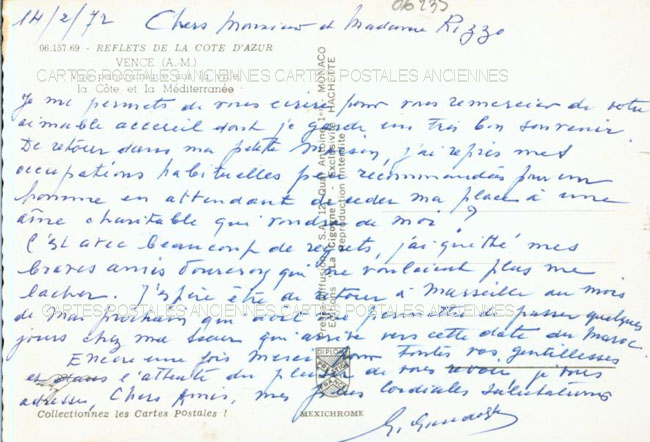 14/2/72 Chers Monsieur et Madame Rizzo
06235
06.157.69 - REFLETS DE LA COTE D'AZUR
VENCE (A.-M.)
Vue panoramique sur la ville
la Côte et la Méditerranée
CARTES POSTALES ANCIENNES CARTES POSTALES ANCIENNES
Je me permets de vous écrire pour vous remercier de votre
aimable accueil dont je garde un très bon souvenir.
De retour dans ma petite maison, j'ai repris mes
occupations habituelles peu recommandées pour un
homme en attendant de céder ma place à une
âme charitable qui voudra de moi ?
C'est avec beaucoup de regrets, j'ai quitté mes
braves amis qui ne voulaient plus me
lâcher. J'espère être de retour à Marseille au mois
CARTES POSTALES ANCIENNES CARTES POSTALES ANCIENNES
de Mai prochain qui me permettra de passer quelques
jours chez ma sœur qui arrive vers cette date du Maroc.
Encore une fois merci pour toutes vos gentillesses
et dans l'attente du plaisir de vous revoir je vous
adresse, Chers Amis, mes plus cordiales salutations
Collectionnez les Cartes Postales !
MEXICHROME
S.A. 12, Quai Antoine 1er MONACO
Editions "La Cigogne" Exclusivité HACHETTE
Reproduction interdite